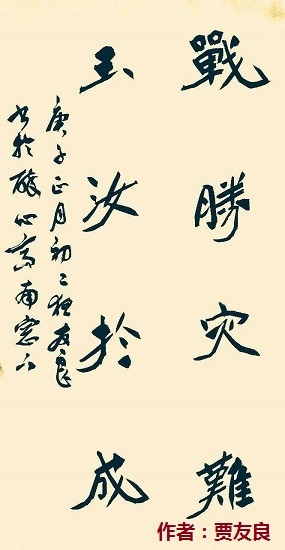 戰勝灾難
玉汝於成
庚子正月初二友良
书於心斋南窓下
作者：贾友良